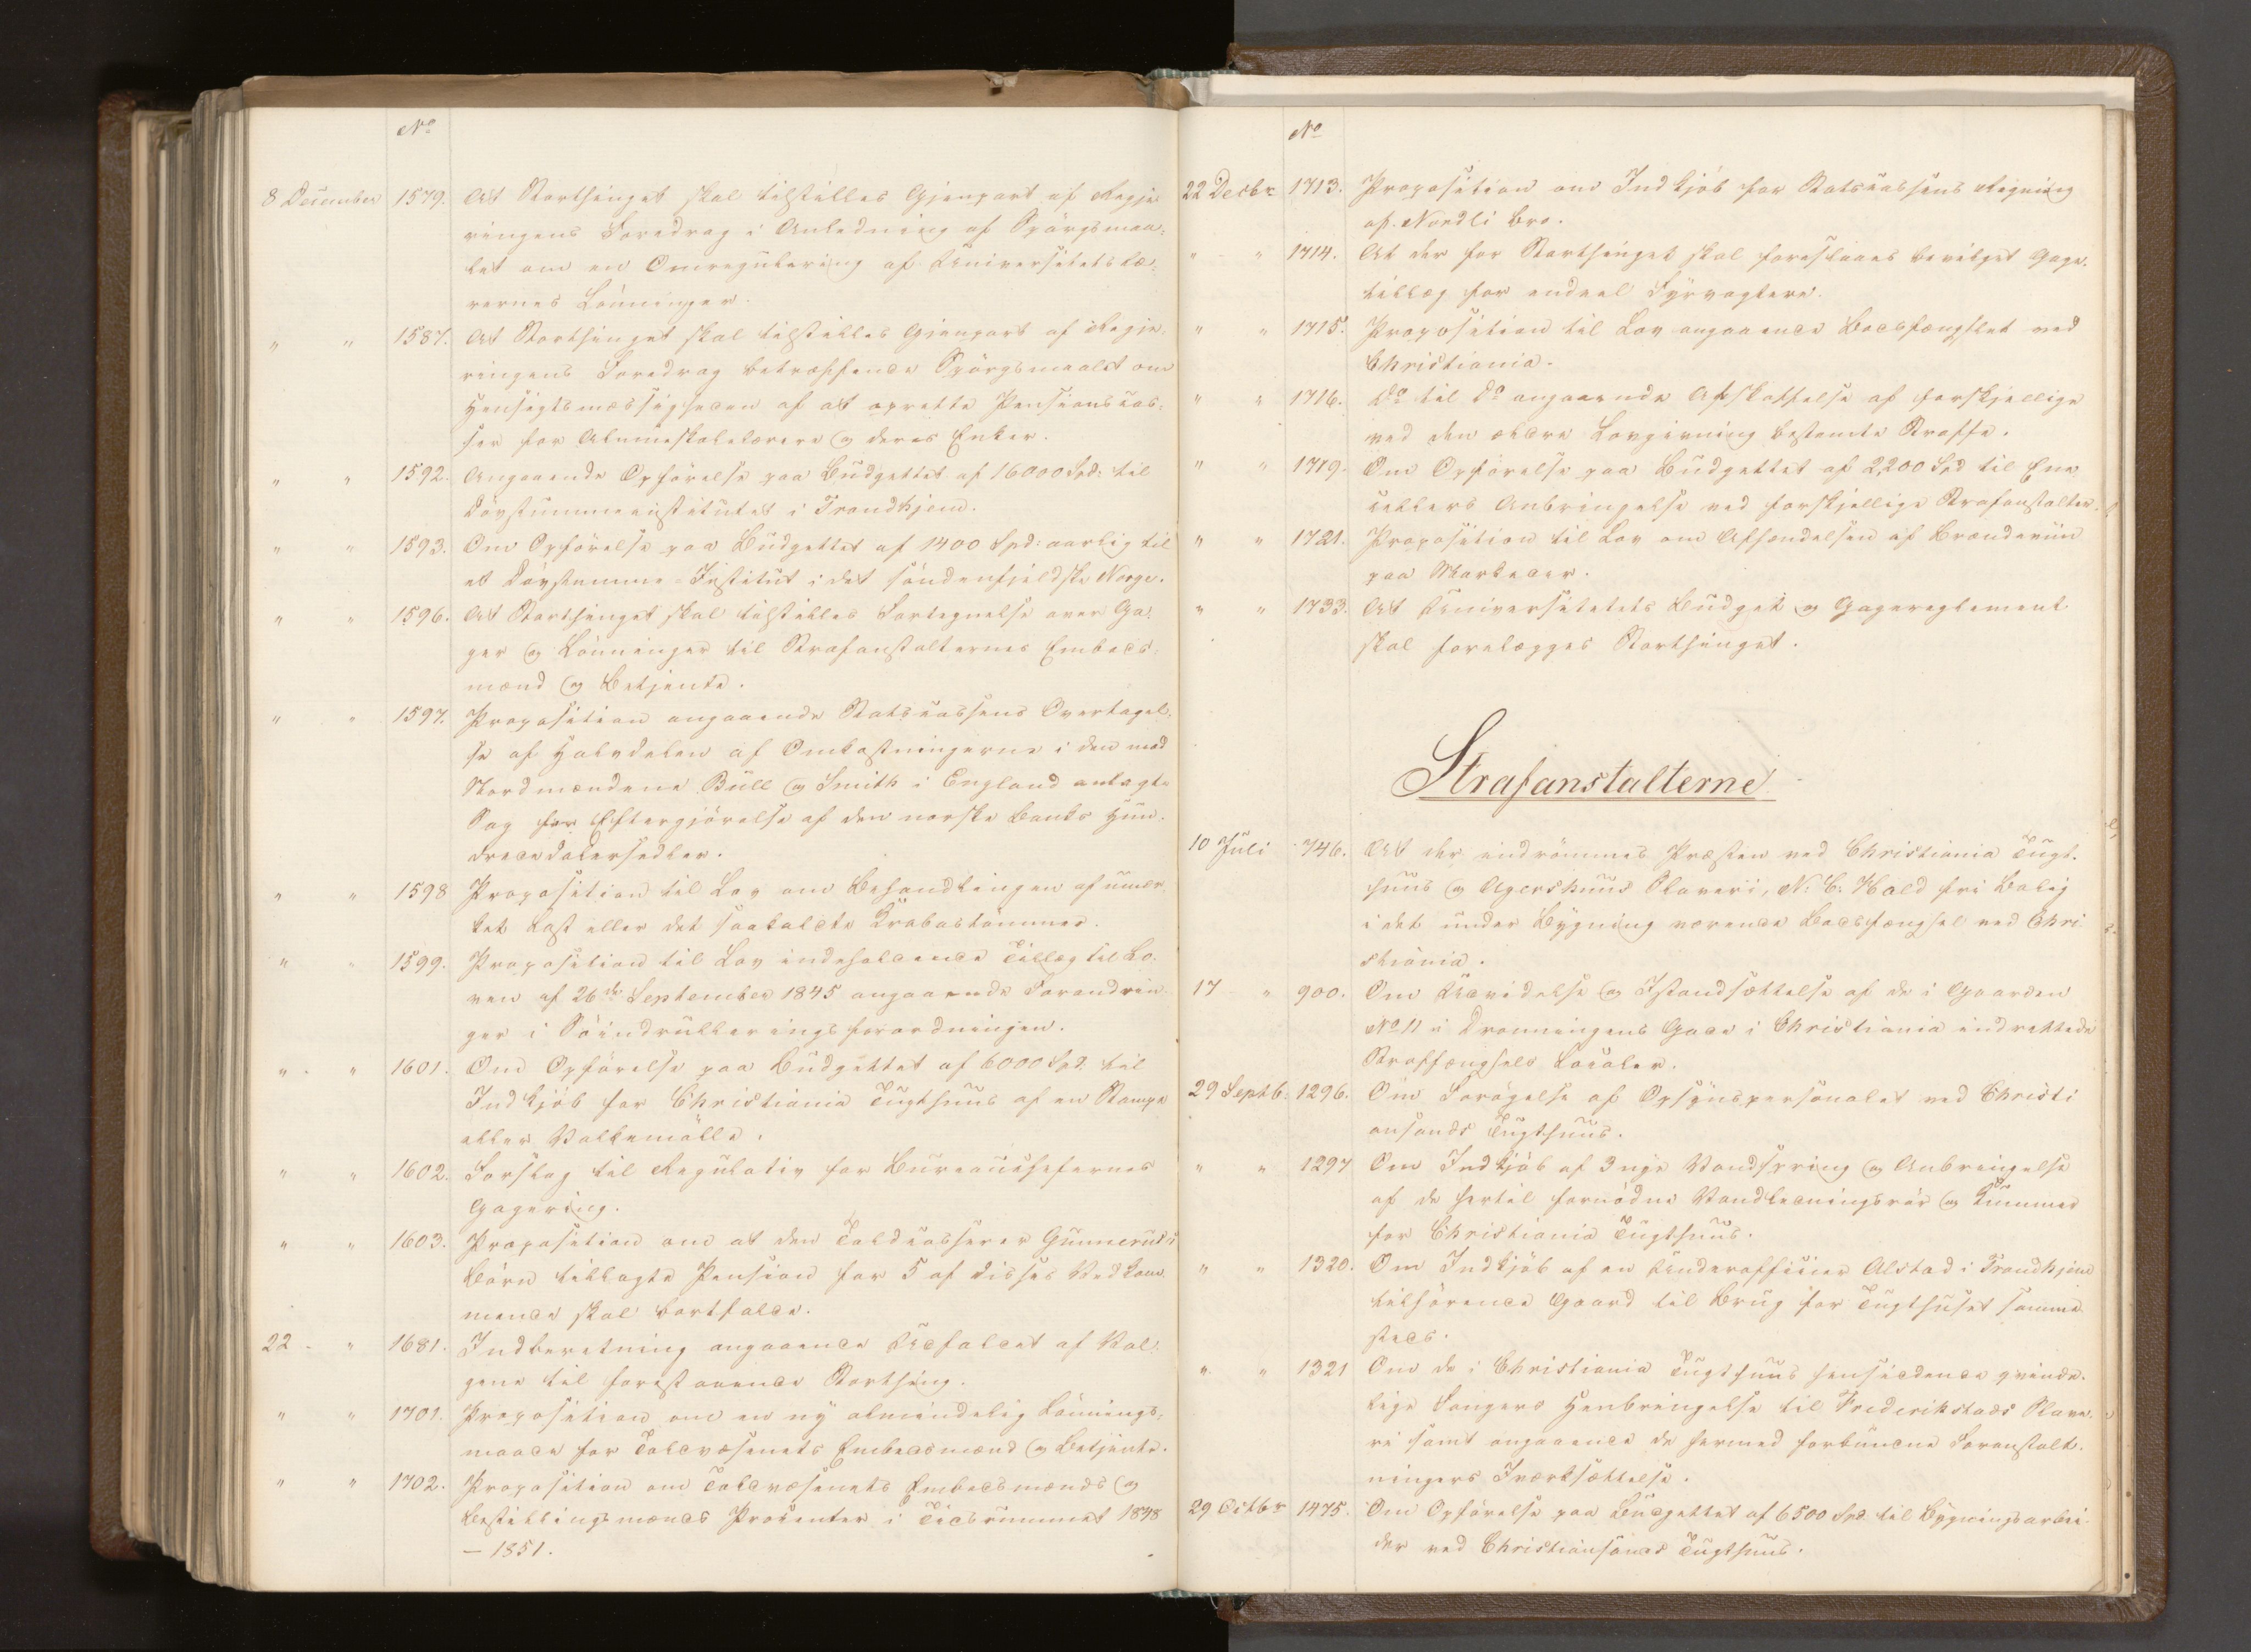 No
8 December 1579. At Storthinget skal tilstilles Gjenpart af Regje-
ringens Foredrag i Anledning af Spörgsmaa-
let om en Omregulering af Universitetslæ-
rernes Lönninger.
" " 1587. At Storthinget skal tilstilles Gjenpart af Regje-
ringens Foredrag betræffende Spörgsmaalet om
Hensigtsmæssigheden af at oprette Pensionskas-
ser for Almueskolelærere og deres Enker.
" " 1592. Angaaende Opförelse paa Budgettet af 16000 Spd: til
Dövstummeinstitutet i Trondhjem.
" " 1593. Om Opförelse paa Budgettet af 1400 Spd: aarlig til
et Dövstumme-Institut i det söndenfjeldske Norge.
" " 1596. At Storthinget skal tilstilles Fortegnelse over Ga-
ger og Lönninger til Strafanstalternes Embeds-
mænd og Betjente.
" " 1597. Proposition angaaende Statskassens Overtagel-
se af Halvdelen af Omkostningerne i den mod
Nordmændene Büll og Smith i England anlagte
Sag for Eftergjörelse af den norske Banks Hun-
dredalersedler.
" " 1598 Proposition til Lov om Behandlingen af umær-
ket Last eller det saakaldte Krabastömmer.
" " 1599. Proposition til Lov indeholdende Tillæg til Lo-
ven af 26de September 1845 angaaende Forandrin-
ger i Söindrulleringsforordningen.
" " 1601. Om Opförelse paa Budgettet af 6000 Spd. til
Indkjöb for Christiania Tugthuus af en Stampe
eller Valkemölle.
" " 1602. Forslag til Regulativ for Bureauchefernes
Gagering.
" " 1603. Proposition om at den Toldkasserer Gunnerus's
Börn tillagte Pension for 5 af disses Vedkom-
mende skal bortfalde.
22 " 1681. Indberetning angaaende Udfaldet af Val-
gene til forestaaende Storthing.
" " 1701. Proposition om en ny almindelig Lönnings-
maade for Toldvæsenets Embedsmænd og Betjente.
" " 1702. Proposition om Toldvæsenets Embedsmænds og
Bestillingsmænds Procenter i Tidsrummet 1848
— 1851.
No
22 Decbr 1713. Proposition om Indkjöb for Statskassens Regning
af Nordli Bro.
" " 1714. At der for Storthinget skal foreslaaes bevilget Gage-
tillæg for endeel Fyrvogtere.
" " 1715. Proposition til Lov angaaende Bodsfængslet ved
Christiania.
" " 1716. Do til Do angaaende Afskaffelse af forskjellige
ved den ældre Lovgivning bestemte Straffe.
" " 1719. Om Opförelse paa Budgettet af 2,200 Spd til Ene-
cellers Anbringelse ved forskjellige Strafanstalter.
" " 1721. Proposition til Lov om Afhændelsen af Brændeviin
paa Markeder.
" " 1733. At Universitetets Budget og Gagereglement
skal forelægges Storthinget.
Strafanstalterne
10 Juli 746. At der indrömmes Præsten ved Christiania Tugt-
huus og Agershuus Slaveri, N: C: Hald fri Bolig
i det under Bygning værende Bodsfængsel ved Chri-
stiania.
17 " 900. Om Udvidelse og Istandsættelse af de i Gaarden
No 11 i Dronningens Gade i Christiania indrettede
Straffængsels Localer.
29 Septb. 1296. Om Forögelse af Opsynspersonalet ved Christi-
ansands Tugthuus.
" " 1297 Om Indkjöb af 3 nye Vandspring og Anbringelse
af de hertil fornödne Vandledningsrör og Kummer
for Christiania Tugthuus.
" " 1320. Om Indkjöb af en Underofficier Alstad i Trondhjem
tilhörende Gaard til Brug for Tugthuset samme-
steds.
" " 1321 Om de i Christiania Tugthuus hensiddende qvinde-
lige Fangers Henbringelse til Frederikstads Slave-
ri samt angaaende de hermed forbundne Foranstalt-
ningers Iværksættelse.
29 Octbr 1475. Om Opförelse paa Budgettet af 6500 Spd. til Bygningsarbei-
der ved Christiansands Tugthuus.